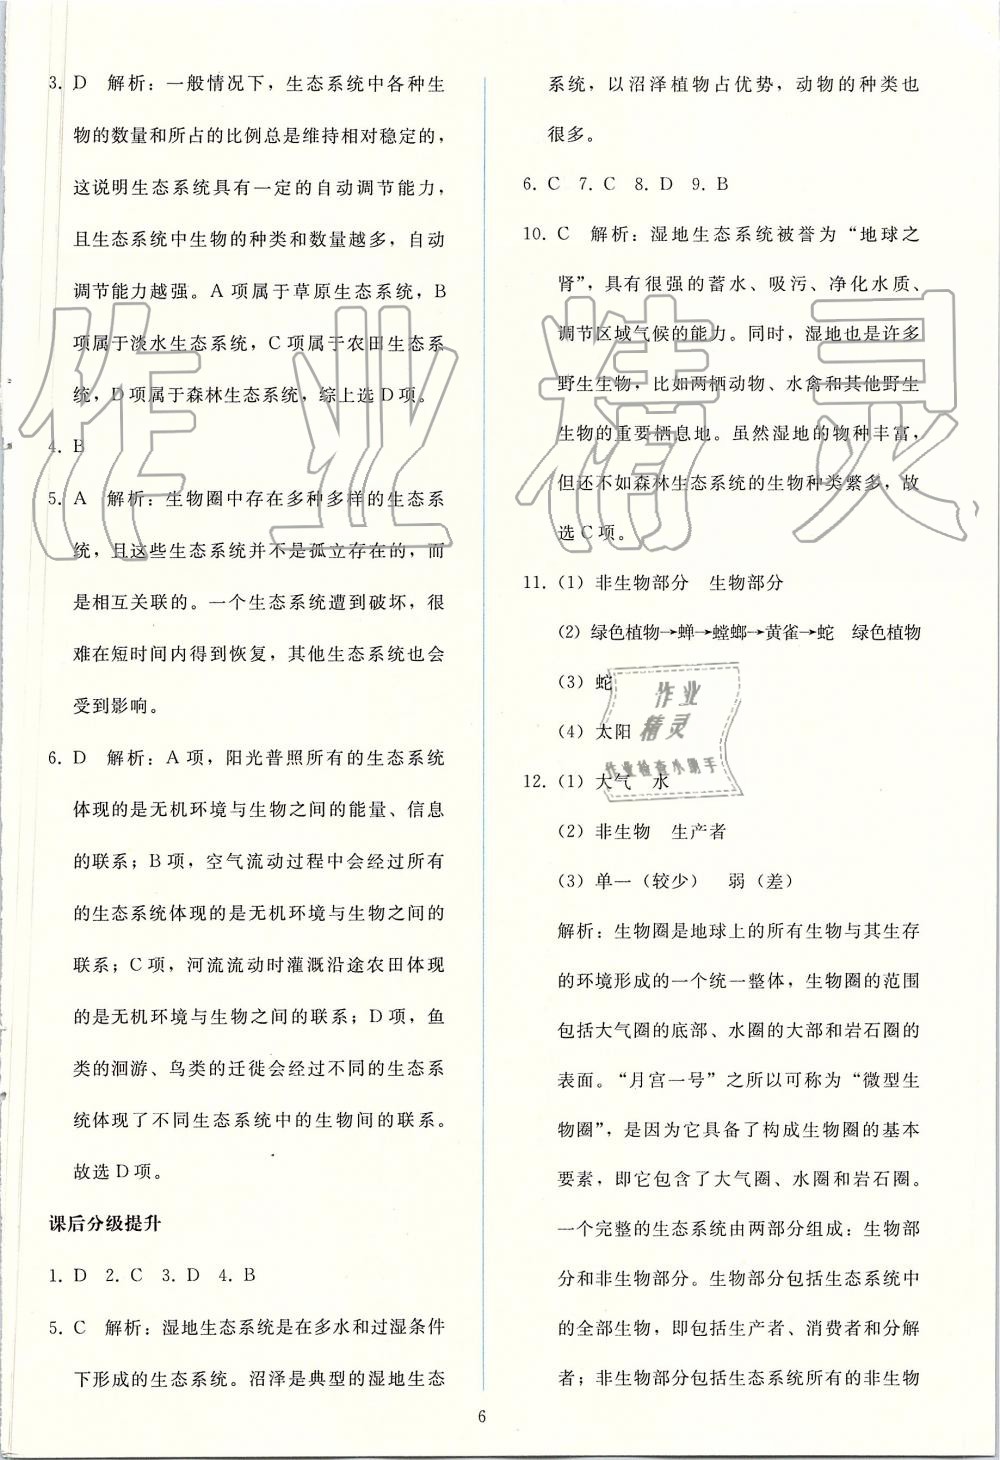 3. D　解析：一般情况下，生态系统中各种生
物的数量和所占的比例总是维持相对稳定的，
这说明生态系统具有一定的自动调节能力，
且生态系统中生物的种类和数量越多，自动
调节能力越强。A 项属于草原生态系统，B
项属于淡水生态系统，C 项属于农田生态系
统，D 项属于森林生态系统，综上选 D 项。
4. B
5. A　解析：生物圈中存在多种多样的生态系
统，且这些生态系统并不是孤立存在的，而
是相互关联的。一个生态系统遭到破坏，很
难在短时间内得到恢复，其他生态系统也会
受到影响。
6. D　解析：A 项，阳光普照所有的生态系统
体现的是无机环境与生物之间的能量、信息
的联系；B 项，空气流动过程中会经过所有
的生态系统体现的是无机环境与生物之间的
联系；C 项，河流流动时灌溉沿途农田体现
的是无机环境与生物之间的联系；D 项，鱼
类的洄游、鸟类的迁徙会经过不同的生态系
统体现了不同生态系统中的生物间的联系。
故选 D 项。
课后分级提升
1. D　2. C　3. D　4. B
5. C　解析：湿地生态系统是在多水和过湿条件
下形成的生态系统。沼泽是典型的湿地生态
系统，以沼泽植物占优势，动物的种类也
很多。
6. C　7. C　8. D　9. B
10. C　解析：湿地生态系统被誉为“地球之
肾”，具有很强的蓄水、吸污、净化水质、
调节区域气候的能力。同时，湿地也是许多
野生生物，比如两栖动物、水禽和其他野生
生物的重要栖息地。虽然湿地的物种丰富，
但还不如森林生态系统的生物种类繁多，故
选 C 项。
11.（1）非生物部分　生物部分
（2）绿色植物→蝉→螳螂→黄雀→蛇　绿色植物
（3）蛇
（4）太阳
12.（1）大气　水
（2）非生物　生产者
（3）单一（较少）　弱（差）
解析：生物圈是地球上的所有生物与其生存
的环境形成的一个统一整体，生物圈的范围
包括大气圈的底部、水圈的大部和岩石圈的
表面。“月宫一号”之所以可称为“微型生
物圈”，是因为它具备了构成生物圈的基本
要素，即它包含了大气圈、水圈和岩石圈。
一个完整的生态系统由两部分组成：生物部
分和非生物部分。生物部分包括生态系统中
的全部生物，即包括生产者、消费者和分解
者；非生物部分包括生态系统所有的非生物
6
作业精灵
作业
精灵
作业检查小助手